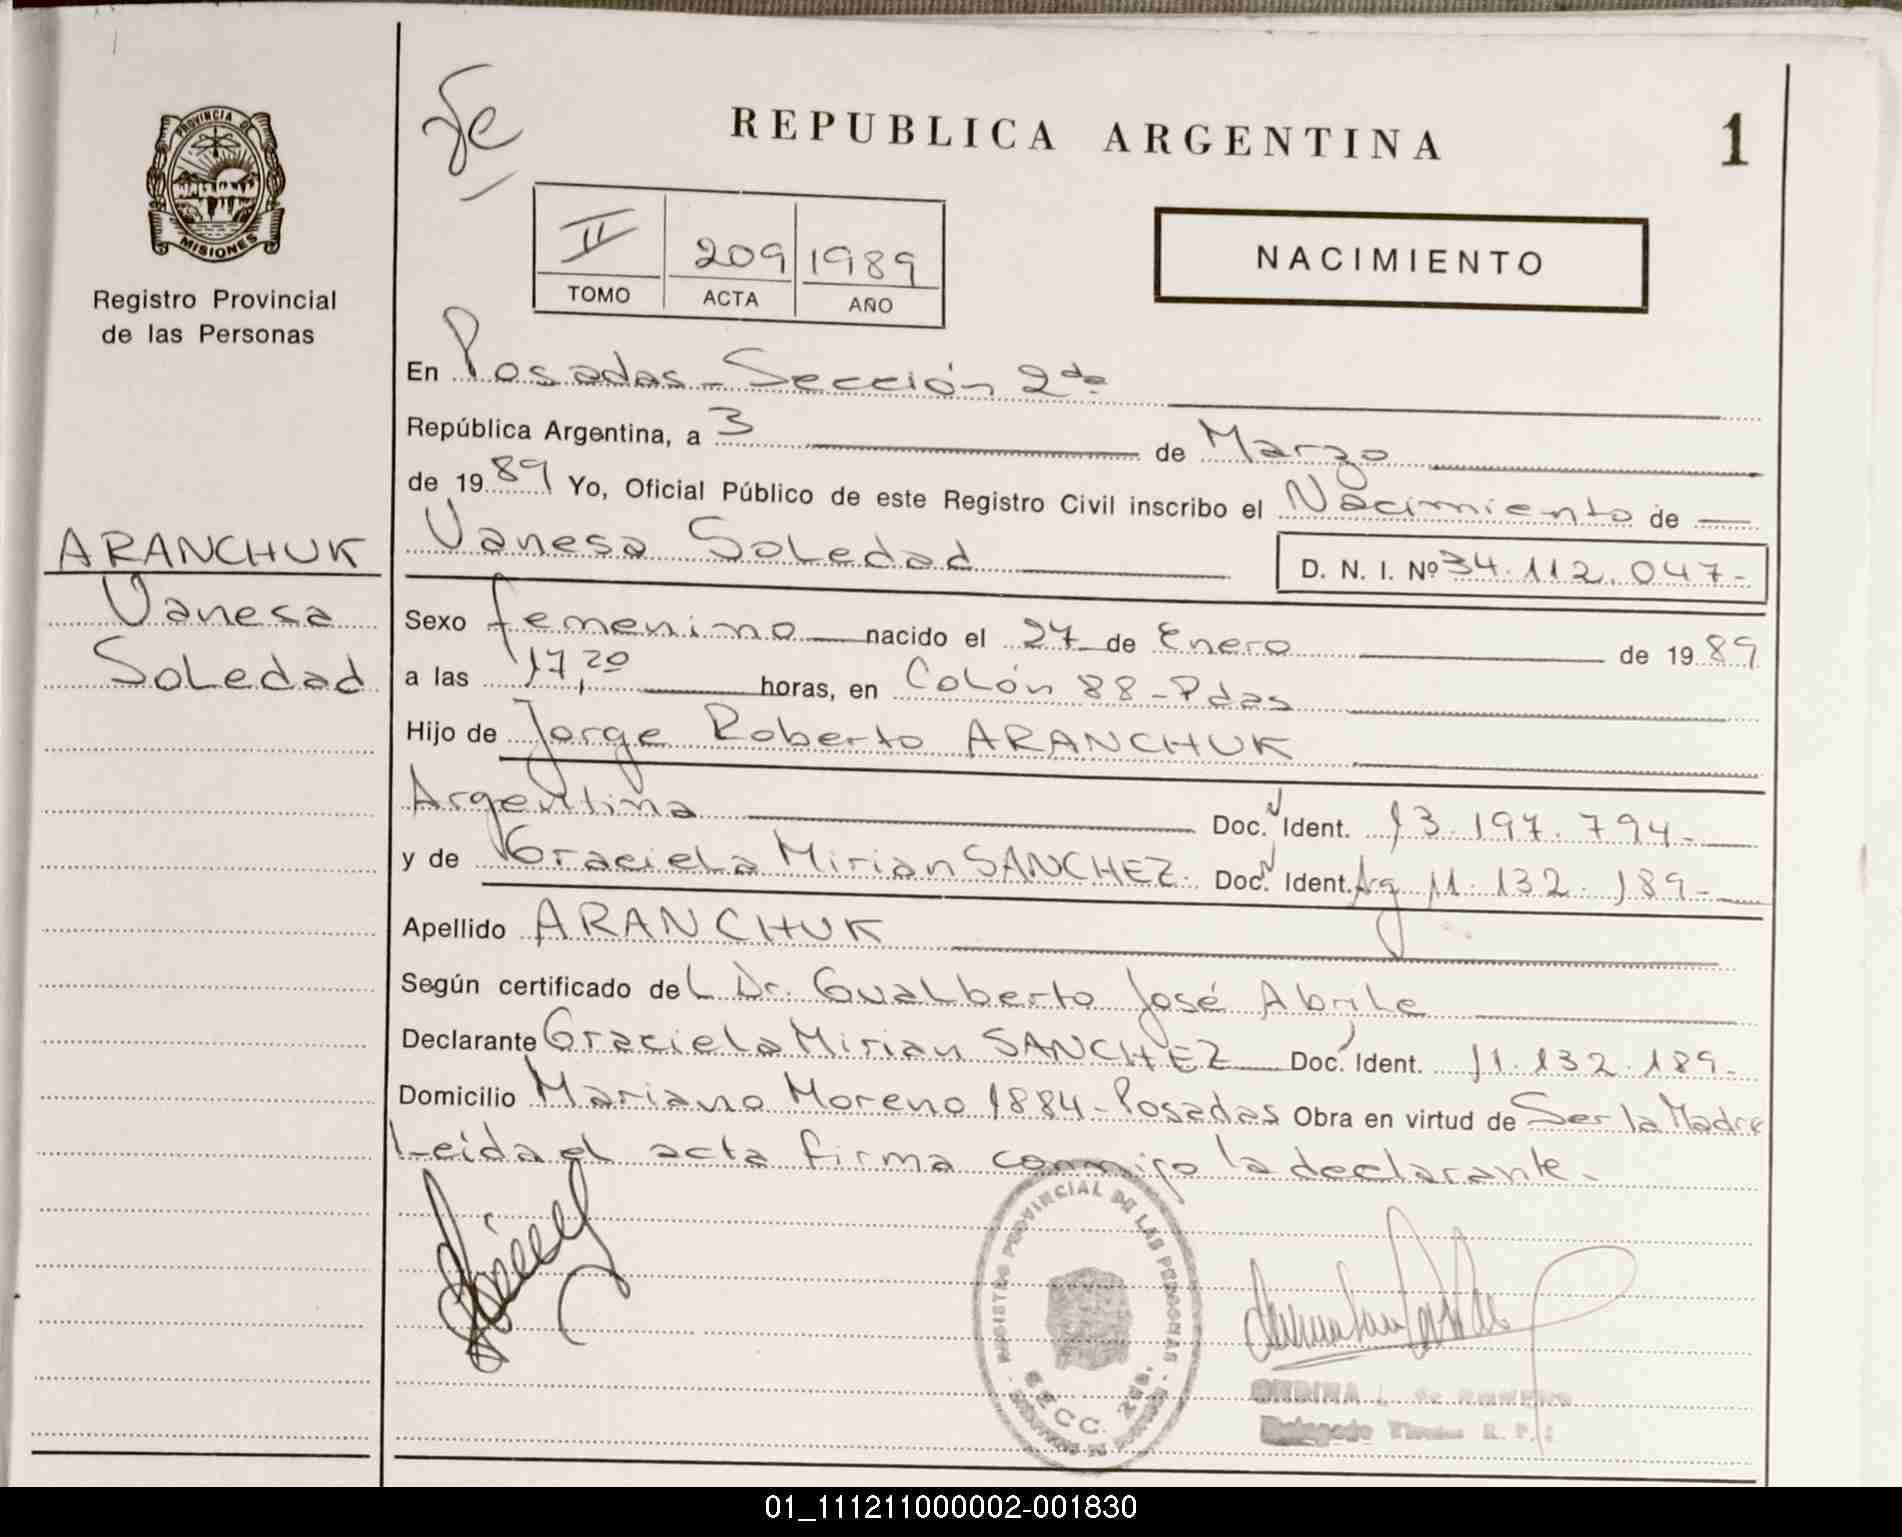 REPUBLICA ARGENTINA
1
PROVINCIA DE
MISIONES
Registro Provincial
de las Personas
II 209 1989
TOMO ACTA AÑO
NACIMIENTO
En Posadas - Sección 2da
República Argentina, a 3 de Marzo
de 1989 Yo, Oficial Público de este Registro Civil inscribo el Nacimiento de
ARANCHUK
Vanesa
Soledad
Vanesa Soledad D. N. I. Nº 34.112.047-
Sexo femenino nacido el 27 de Enero de 1989
a las 17,20 horas, en Colón 88 - Pdas
Hijo de Jorge Roberto ARANCHUK
Argentina Doc. Ident. 13.197.794-
y de Graciela Mirian SANCHEZ. Doc. Ident. Arg 11.132.189-
Apellido ARANCHUK
Según certificado del Dr. Gualberto José Abrile
Declarante Graciela Mirian SANCHEZ Doc. Ident. 11.132.189-
Domicilio Mariano Moreno 1884 - Posadas Obra en virtud de Ser la Madre
Leida el acta firma conmigo la declarante.
REGISTRO PROVINCIAL DE LAS PERSONAS
SECC. 2da.
01_111211000002-001830